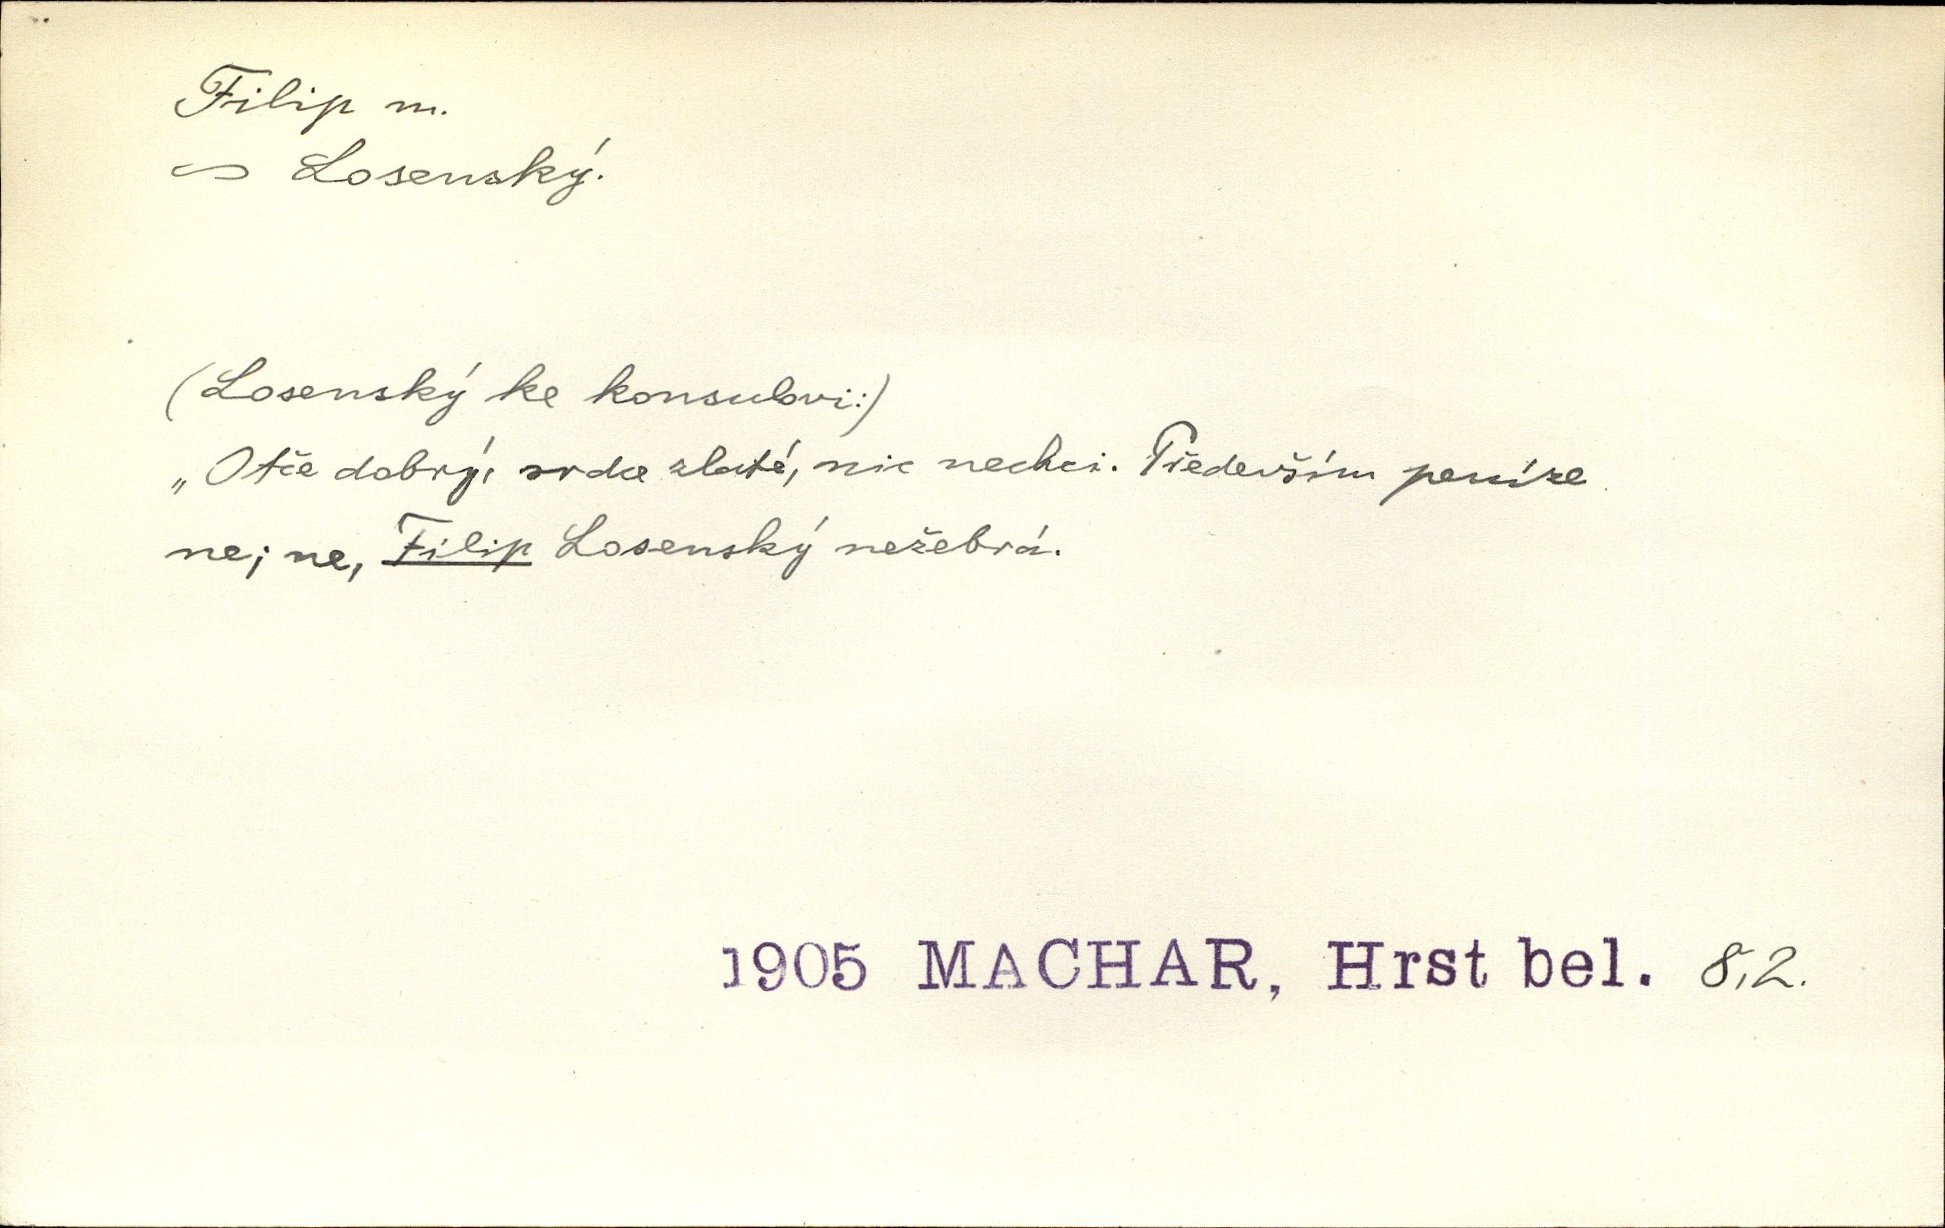 Filip m.
∽ Losenský.
(Losenský ke konsulovi:)
„Otče dobrý, srdce zlaté, nic nechci. Především peníze
ne; ne, Filip Losenský nežebrá.
1905 MACHAR, Hrst bel. 8,2.